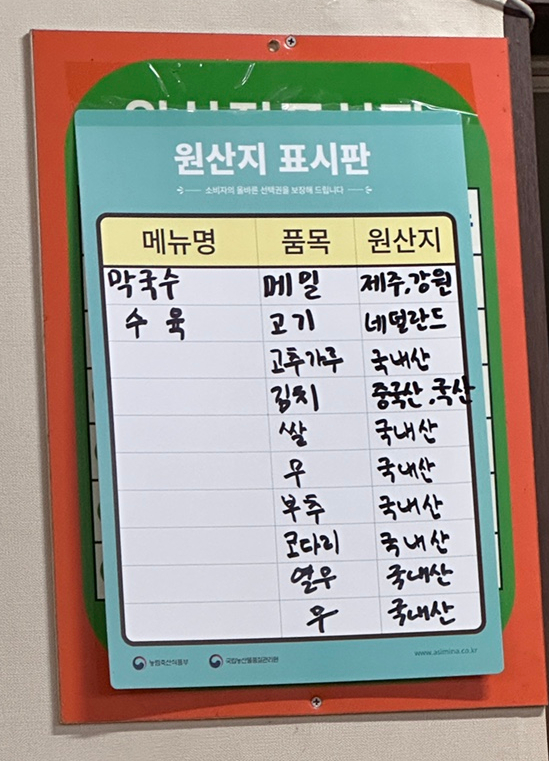 원산지 표시판
소비자의 올바른 선택권을 보장해 드립니다
메뉴명 품목 원산지
막국수 메밀 제주,강원
수육 고기 네덜란드
고추가루 국내산
김치 중국산,국산
쌀 국내산
무 국내산
부추 국내산
코다리 국내산
열무 국내산
무 국내산
농림축산식품부 국립농산물품질관리원 www.asimina.co.kr